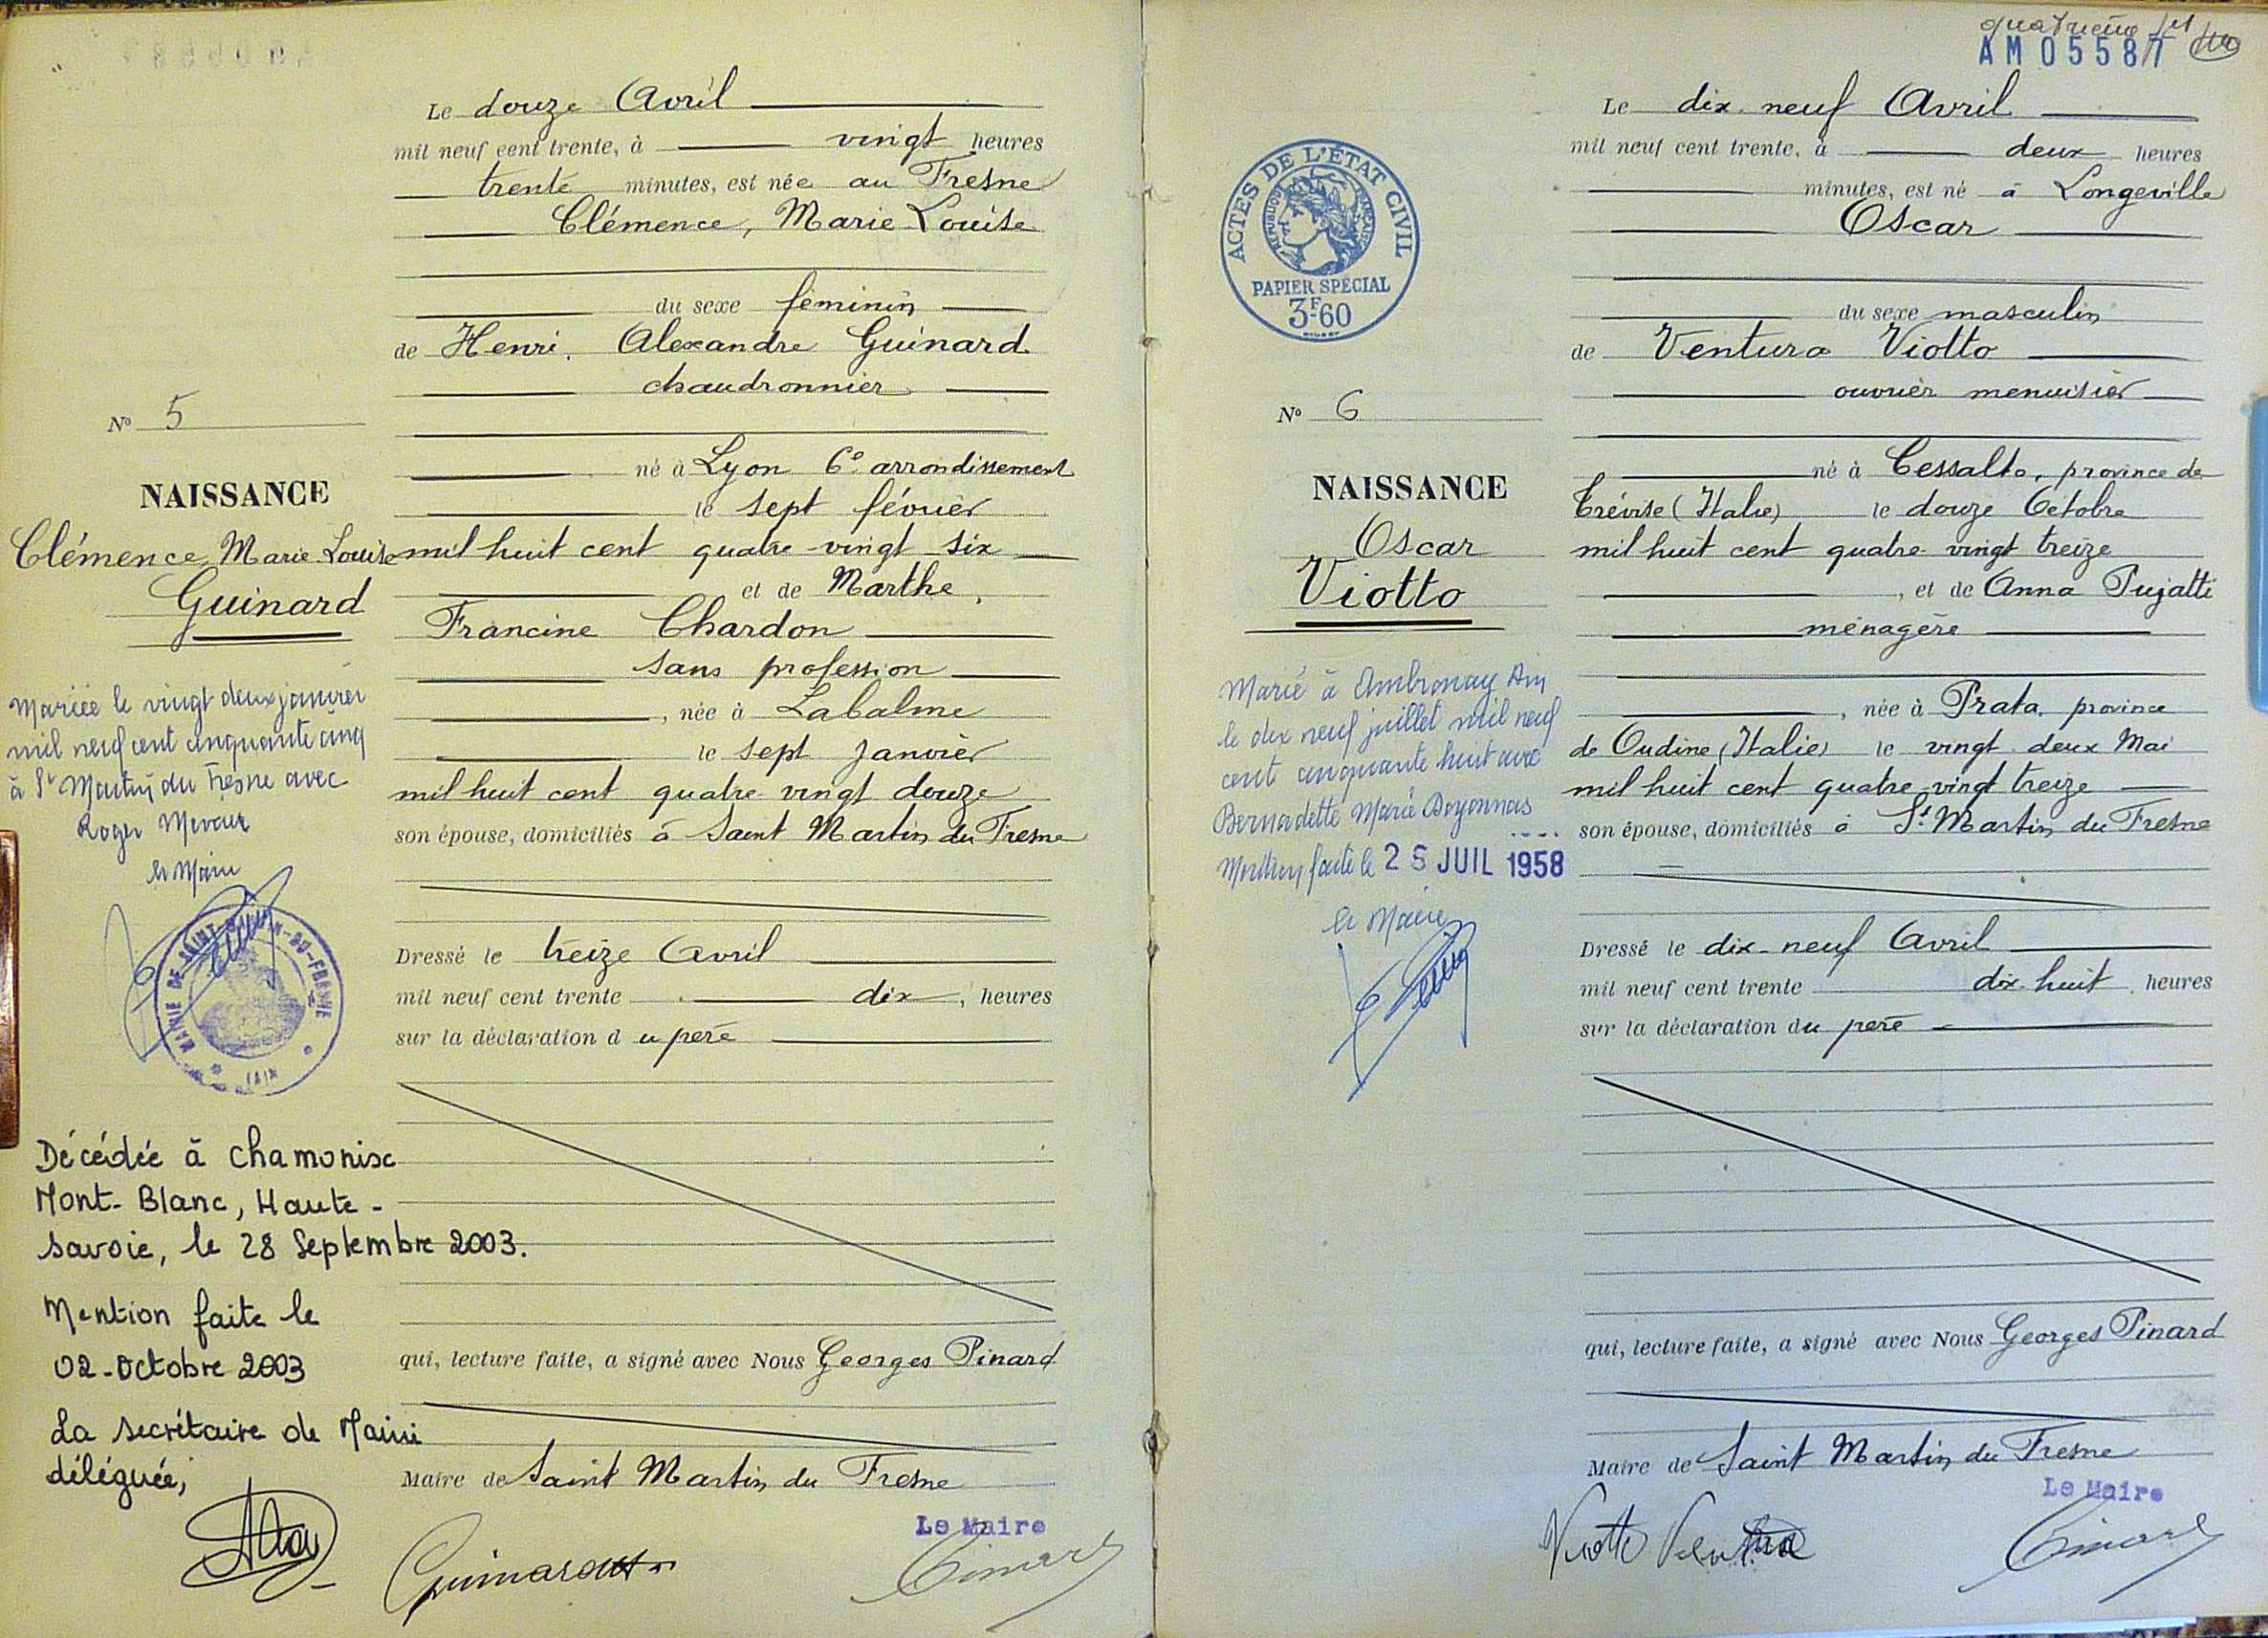 Le douze Avril
mil neuf cent trente, à vingt heures
trente minutes, est née au Fresne
Clémence, Marie-Louise
du sexe féminin
de Henri, Alexandre Guinard
chaudronnier
né à Lyon 6e arrondissement
le sept février
mil huit cent quatre-vingt-six
et de Marthe,
Francine Chardon
sans profession
, née à Labalme
le sept Janvier
mil huit cent quatre-vingt douze
son épouse, domiciliés à Saint Martin du Fresne
Dressé le treize Avril
mil neuf cent trente dix, heures
sur la déclaration du père
qui, lecture faite, a signé avec Nous Georges Pinard
Maire de Saint Martin du Fresne
Le Maire
Guinard
Pinard
No 5
NAISSANCE
Clémence, Marie-Louise
Guinard
Mariée le vingt deux janvier
mil neuf cent cinquante cinq
à St Martin du Fresne avec
Roger
le Maire
MAIRIE DE SAINT-MARTIN-DU-FRESNE
(AIN)
Décédée à Chamonix
Mont-Blanc, Haute-
Savoie, le 28 Septembre 2003.
Mention faite le
02-Octobre 2003
La secrétaire de Mairie
déléguée,
quatrième
AM05587
Le dix-neuf Avril
mil neuf cent trente, à deux heures
minutes, est né à Longeville
Oscar
du sexe masculin
de Ventura Viotto
ouvrier menuisier
né à Cessalto, province de
Trévise (Italie) le douze Octobre
mil huit cent quatre-vingt treize
, et de Anna Pujatti
ménagère
, née à Prata, province
de Oudine (Italie) le vingt-deux Mai
mil huit cent quatre-vingt treize
son épouse, domiciliés à St Martin du Fresne
Dressé le dix-neuf Avril
mil neuf cent trente dix-huit, heures
sur la déclaration du père
qui, lecture faite, a signé avec Nous Georges Pinard
Maire de Saint Martin du Fresne
Le Maire
Viotto Ventura
Pinard
ACTES DE L'ÉTAT CIVIL
RÉPUBLIQUE FRANÇAISE
PAPIER SPÉCIAL
3F60
No 6
NAISSANCE
Oscar
Viotto
Marié à Ambronay Ain
le dix neuf juillet mil neuf
cent cinquante huit avec
Bernadette Marie
Mention faite le 25 JUIL 1958
le Maire